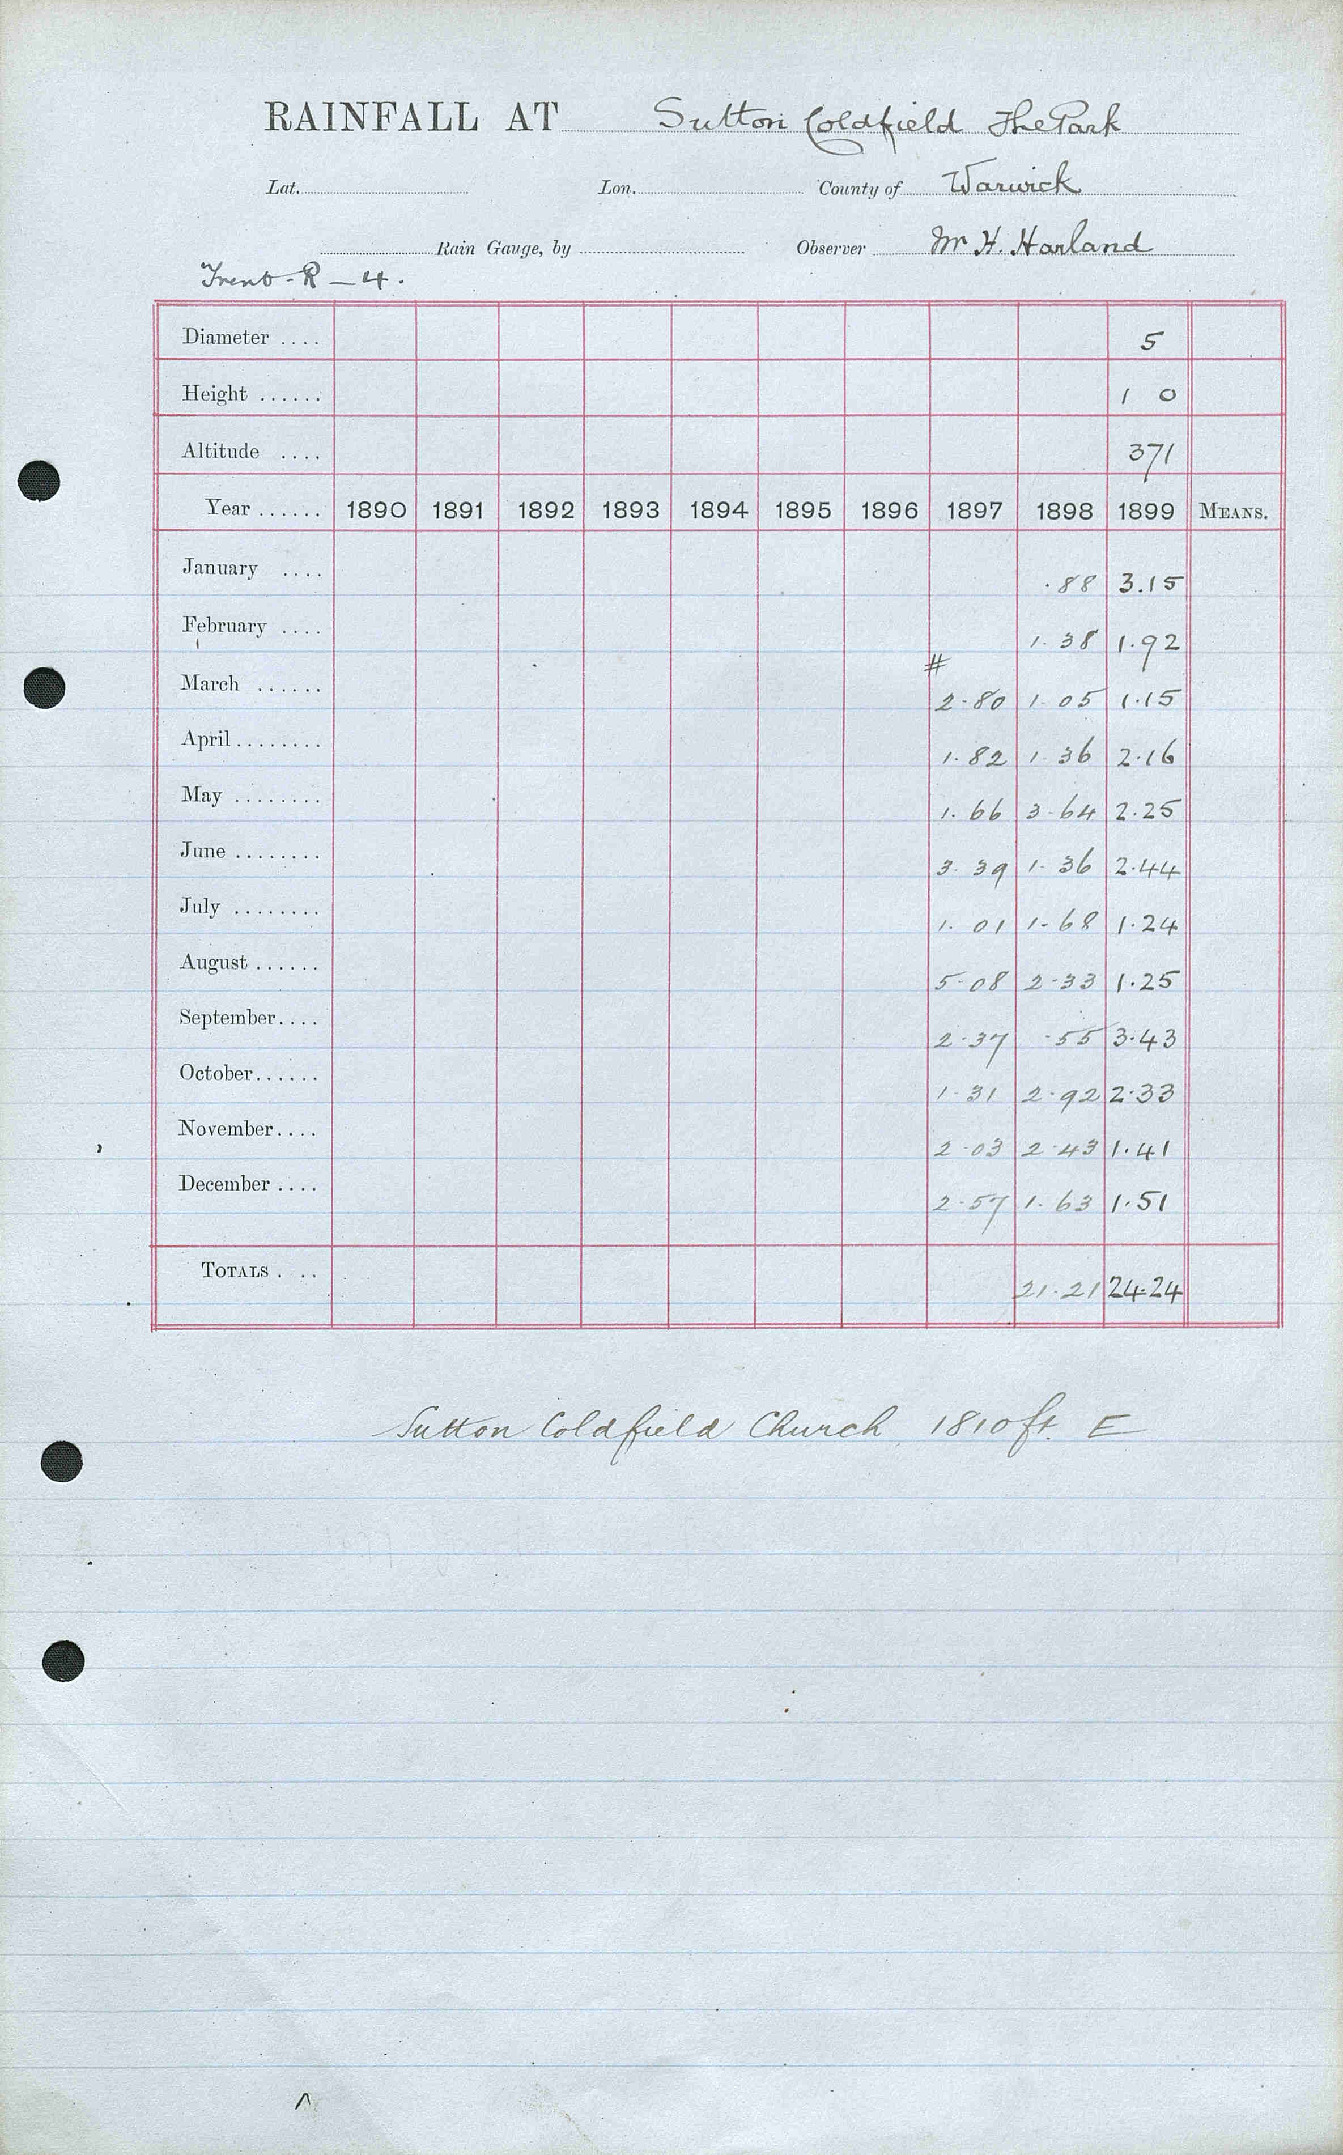 RAINFALL AT Sutton Coldfield The Park
Lat. Lon. County of Warwick
Rain Gauge, by Observer Mr H. Harland
Trent-R-4.
Diameter .... 5
Height ...... 1 0
Altitude .... 371
Year ...... 1890 1891 1892 1893 1894 1895 1896 1897 1898 1899 MEANS.
January .... .88 3.15
February .... 1.38 1.92
#
March ...... 2.80 1.05 1.15
April........ 1.82 1.36 2.16
May ........ 1.66 3.64 2.25
June ........ 3.39 1.36 2.44
July ........ 1.01 1.68 1.24
August ...... 5.08 2.33 1.25
September.... 2.37 .55 3.43
October...... 1.31 2.92 2.33
November.... 2.03 2.43 1.41
December .... 2.57 1.63 1.51
TOTALS . .. 21.21 24.24
Sutton Coldfield Church 1810 ft. E